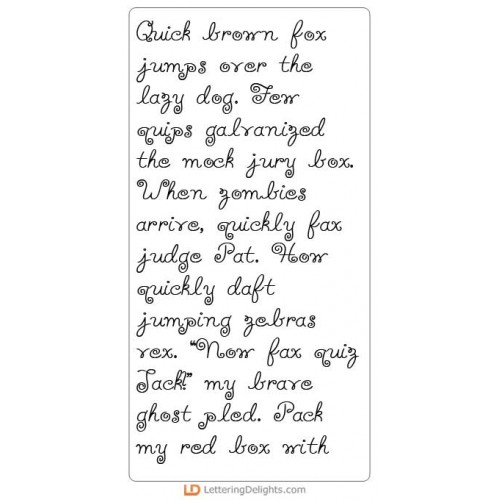 Quick brown fox
jumps over the
lazy dog. Few
quips galvanized
the mock jury box.
When zombies
arrive, quickly fax
judge Pat. How
quickly daft
jumping zebras
vex. "Now fax quiz
Jack!" my brave
ghost pled. Pack
my red box with
LD LetteringDelights.com